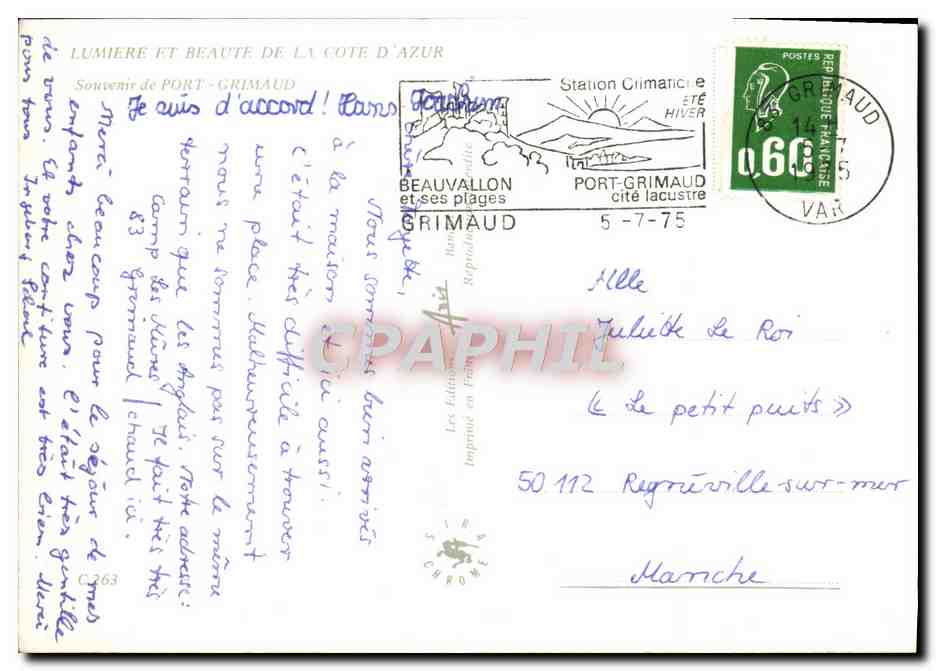 LUMIERE ET BEAUTE DE LA COTE D'AZUR
Souvenir de PORT - GRIMAUD
Je suis d'accord! Hans
Juliette,
Nous sommes bien arrivés
à la maison et ici aussi.
C'était très difficile à trouver
une place. Malheureusement
nous ne sommes pas sur le même
terrain que les Anglais. Notre adresse:
Camp Les Mûres / Je fait très très
83 Grimaud / chaud ici.
Merci beaucoup pour le séjour de mes
enfants chez vous. C'était très gentille
de vous. Et votre confiture est très bien. Merci
pour tous Ingeborg
Station Climatique
ÉTÉ
HIVER
BEAUVALLON
et ses plages
PORT-GRIMAUD
cité lacustre
GRIMAUD 5-7-75
POSTES
REPUBLIQUE FRANÇAISE
0,60
GRIMAUD
VAR
Les Editions
Aris
Imprimé en
CPAPHIL
IRA
CHROME
C.263
Mlle
Juliette Le Roi
« Le petit puits »
50 112 Regnéville-sur-mer
Manche